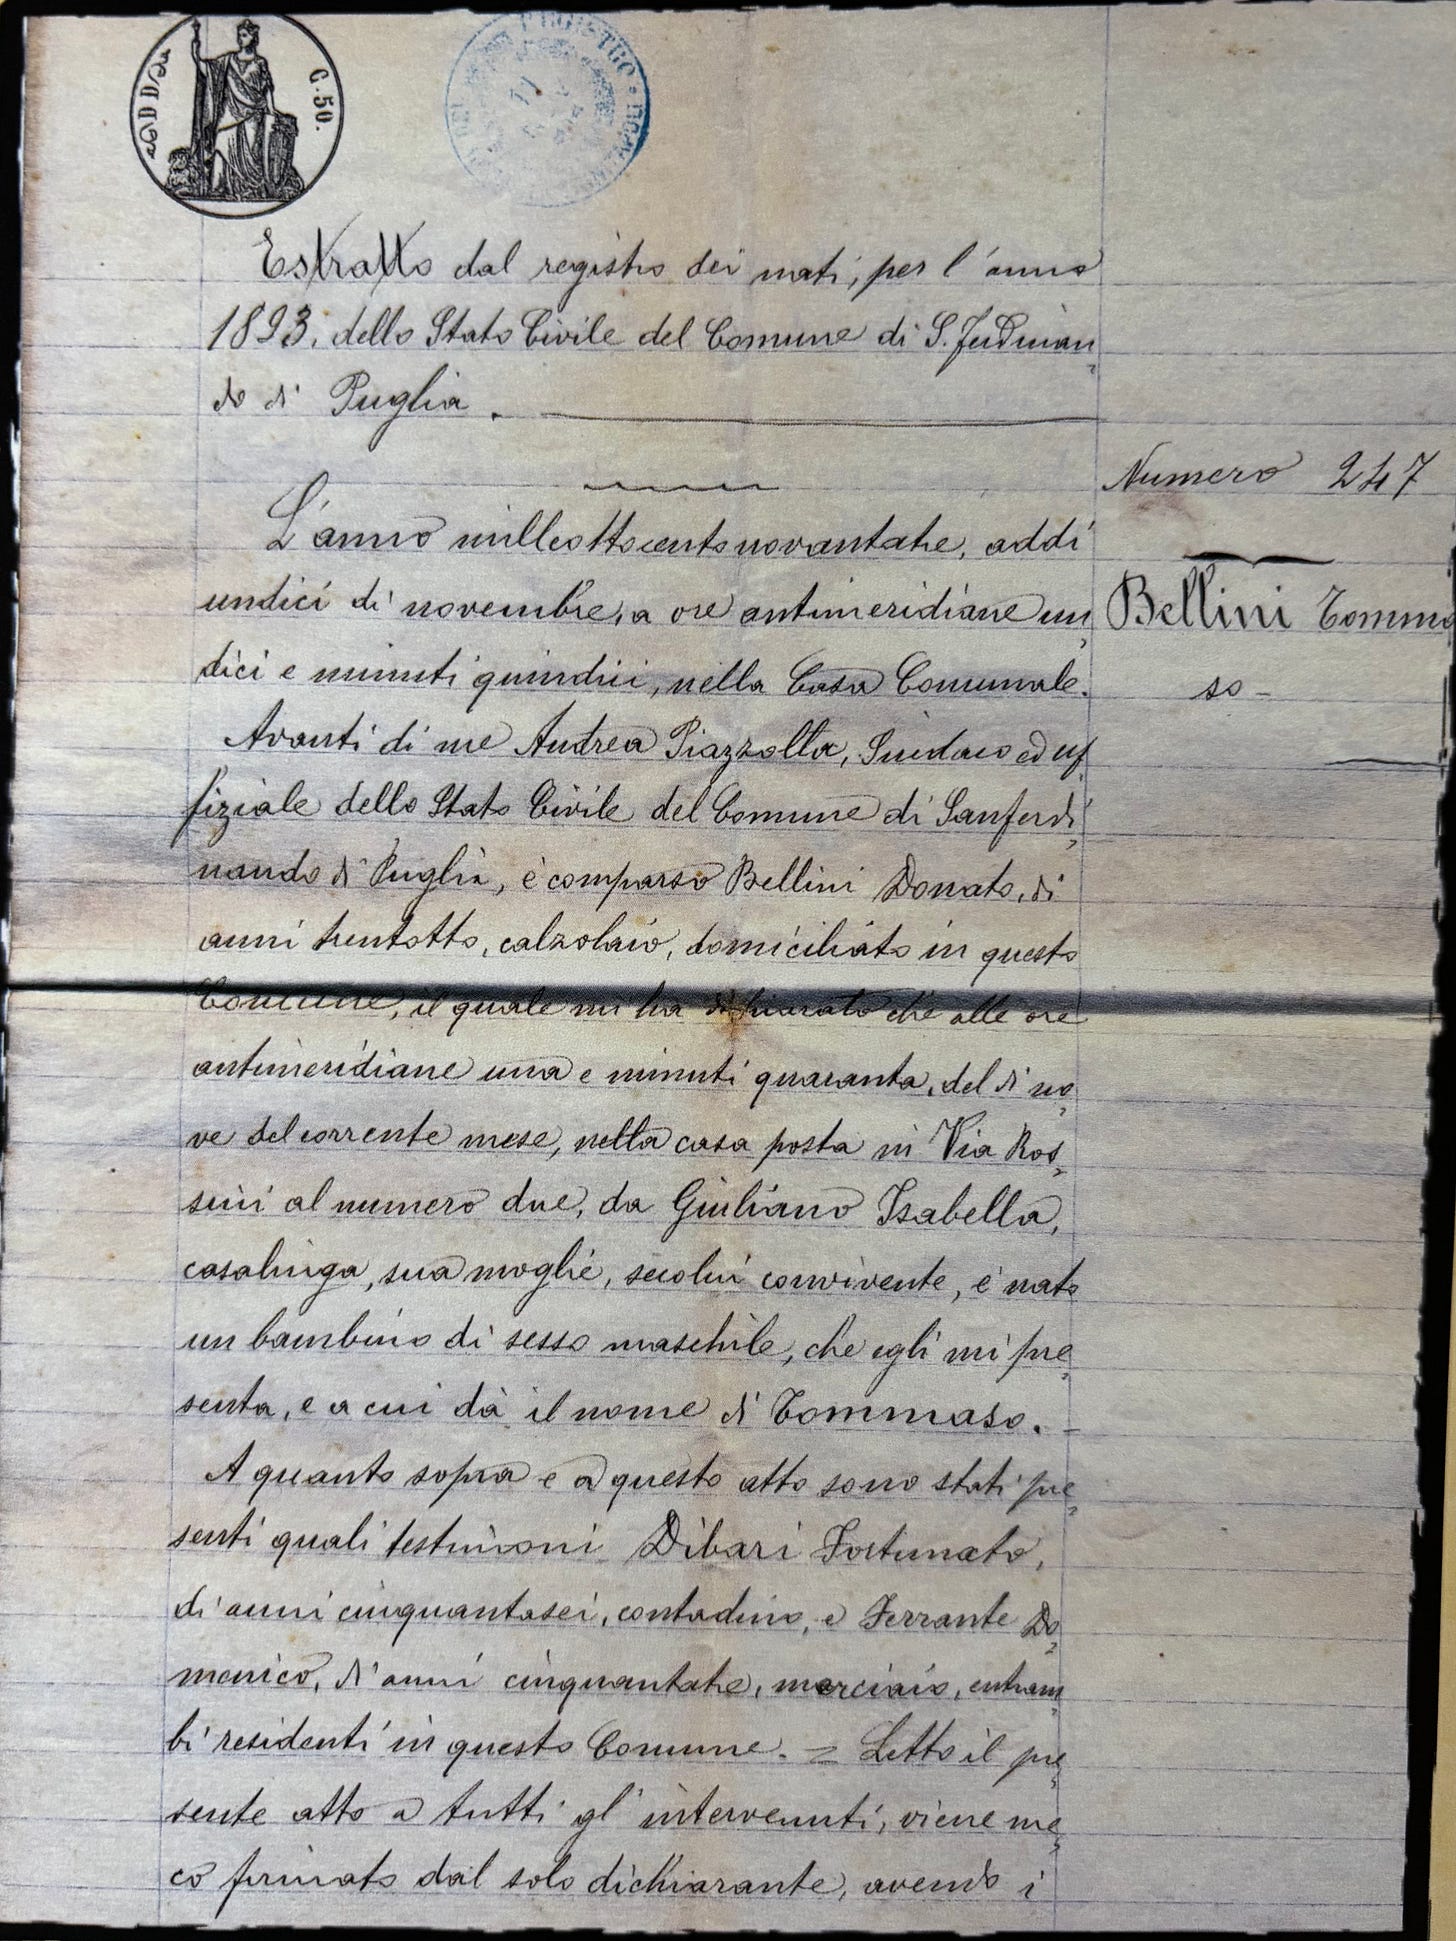 C. 50.
Estratto dal registro dei nati, per l'anno
1893, dello Stato Civile del Comune di S. Ferdinan„
do di Puglia.
Numero 247
Bellini Tomma
so -
L'anno milleottocentonovantatre, addì
undici di novembre, a ore antimeridiane un„
dici e minuti quindici, nella Casa Comunale.
Avanti di me Andrea Piazzolla, Sindaco ed uf„
fiziale dello Stato Civile del Comune di Sanferdi„
nando di Puglia, è comparso Bellini Donato, di
anni trentotto, calzolaio, domiciliato in questo
Comune, il quale mi ha dichiarato che alle ore
antimeridiane una e minuti quaranta, del dì no„
ve del corrente mese, nella casa posta in Via Ros„
sini al numero due, da Giuliano Isabella,
casalinga, sua moglie, secolui convivente, è nato
un bambino di sesso maschile, che egli mi pre„
senta, e a cui dà il nome di Tommaso. -
A quanto sopra e a questo atto sono stati pre„
senti quali testimoni Dibari Fortunato,
di anni cinquantasei, contadino, e Ferrante Do„
menico, di anni cinquantatre, merciaio, entram„
bi residenti in questo Comune. = Letto il pre„
sente atto a tutti gl'intervenuti, viene me„
co firmato dal solo dichiarante, avendo i